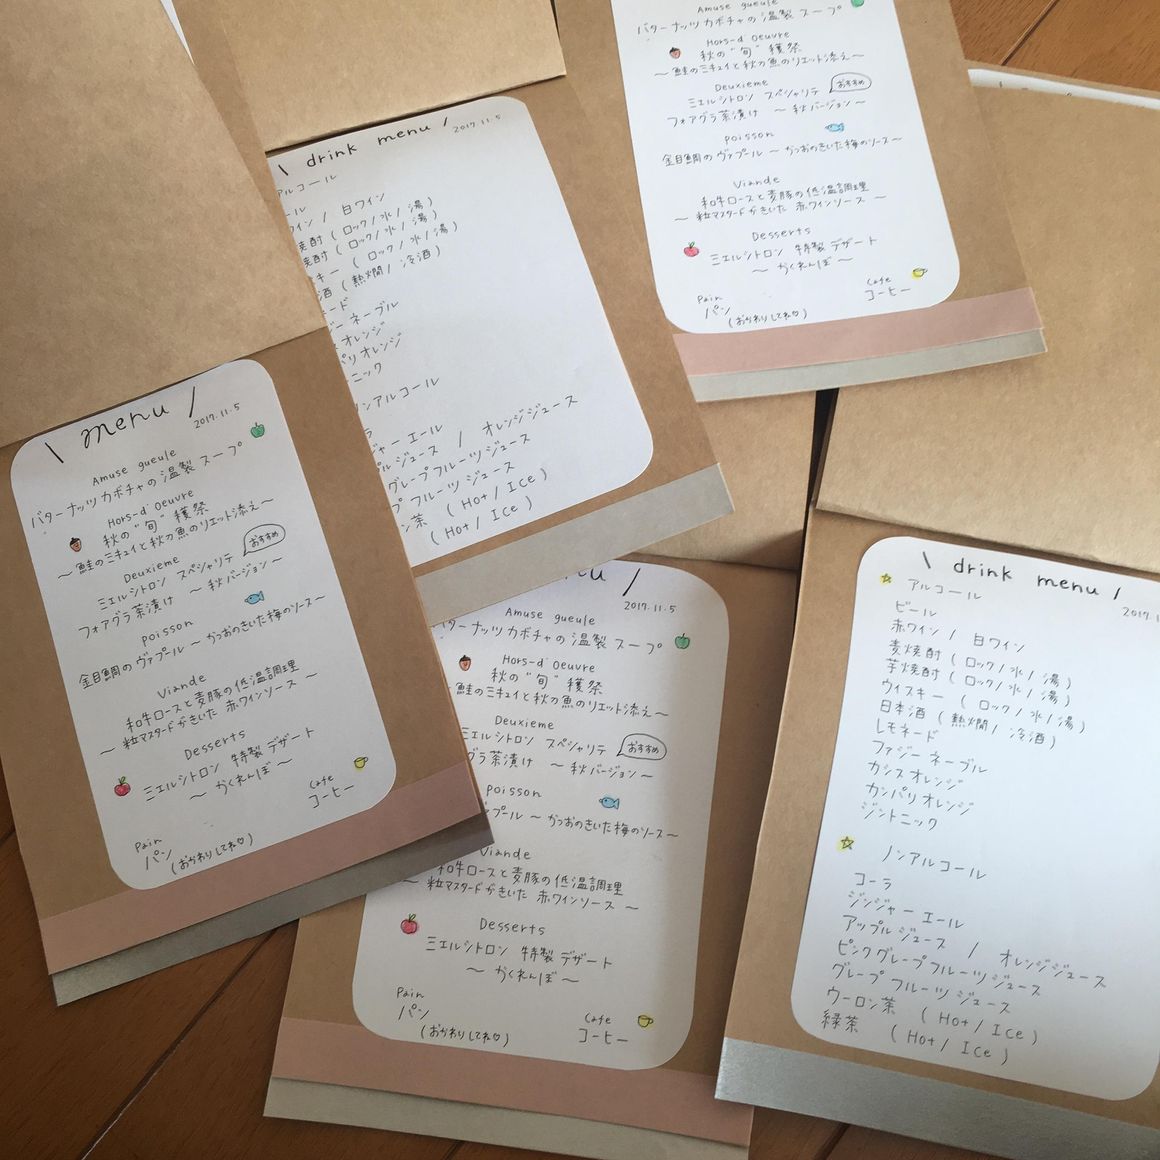 Amuse gueule
バターナッツカボチャの温製スープ
Hors-d'Oeuvre
秋の"旬"穫祭
～鮭のミキュイと秋刀魚のリエット添え～
Deuxieme
ミエルシトロン スペシャリテ
おすすめ
フォアグラ茶漬け ～秋バージョン～
poisson
金目鯛のヴァプール ～かつおのきいた梅のソース～
Viande
和牛ロースと麦豚の低温調理
～粒マスタードがきいた 赤ワインソース～
Desserts
ミエルシトロン 特製デザート
～かくれんぼ～
Pain
パン
(おかわりしてね♡)
Cafe
コーヒー
\ drink menu /
2017.11.5
アルコール
ール
イン / 白ワイン
焼酎 (ロック/水/湯)
焼酎 (ロック/水/湯)
キー (ロック/水/湯)
酒 (熱燗/冷酒)
ード
ジーネーブル
オレンジ
パリオレンジ
ニック
ンアルコール
ラ
ジャーエール
プルジュース / オレンジジュース
グレープフルーツジュース
プフルーツジュース
ン茶 (Hot/Ice)
(Hot/Ice)
\ menu /
2017.11.5
Amuse gueule
バターナッツカボチャの温製スープ
Hors-d'Oeuvre
秋の"旬"穫祭
～鮭のミキュイと秋刀魚のリエット添え～
Deuxieme
ミエルシトロン スペシャリテ
おすすめ
フォアグラ茶漬け ～秋バージョン～
poisson
金目鯛のヴァプール ～かつおのきいた梅のソース～
Viande
和牛ロースと麦豚の低温調理
～粒マスタードがきいた 赤ワインソース～
Desserts
ミエルシトロン 特製デザート
～かくれんぼ～
Pain
パン
(おかわりしてね♡)
Cafe
コーヒー
nu /
2017.11.5
Amuse gueule
ターナッツカボチャの温製スープ
Hors-d'Oeuvre
秋の"旬"穫祭
鮭のミキュイと秋刀魚のリエット添え～
Deuxieme
ミエルシトロン スペシャリテ
おすすめ
グラ茶漬け ～秋バージョン～
poisson
プール ～かつおのきいた梅のソース～
Viande
和牛ロースと麦豚の低温調理
～粒マスタードがきいた 赤ワインソース～
Desserts
ミエルシトロン 特製デザート
～かくれんぼ～
Pain
パン
(おかわりしてね♡)
Cafe
コーヒー
\ drink menu /
2017.11
アルコール
ビール
赤ワイン / 白ワイン
麦焼酎 (ロック/水/湯)
芋焼酎 (ロック/水/湯)
ウイスキー (ロック/水/湯)
日本酒 (熱燗/冷酒)
レモネード
ファジーネーブル
カシスオレンジ
カンパリオレンジ
ジントニック
ノンアルコール
コーラ
ジンジャーエール
アップルジュース / オレンジジュース
ピンクグレープフルーツジュース
グレープフルーツジュース
ウーロン茶 (Hot/Ice)
緑茶 (Hot/Ice)